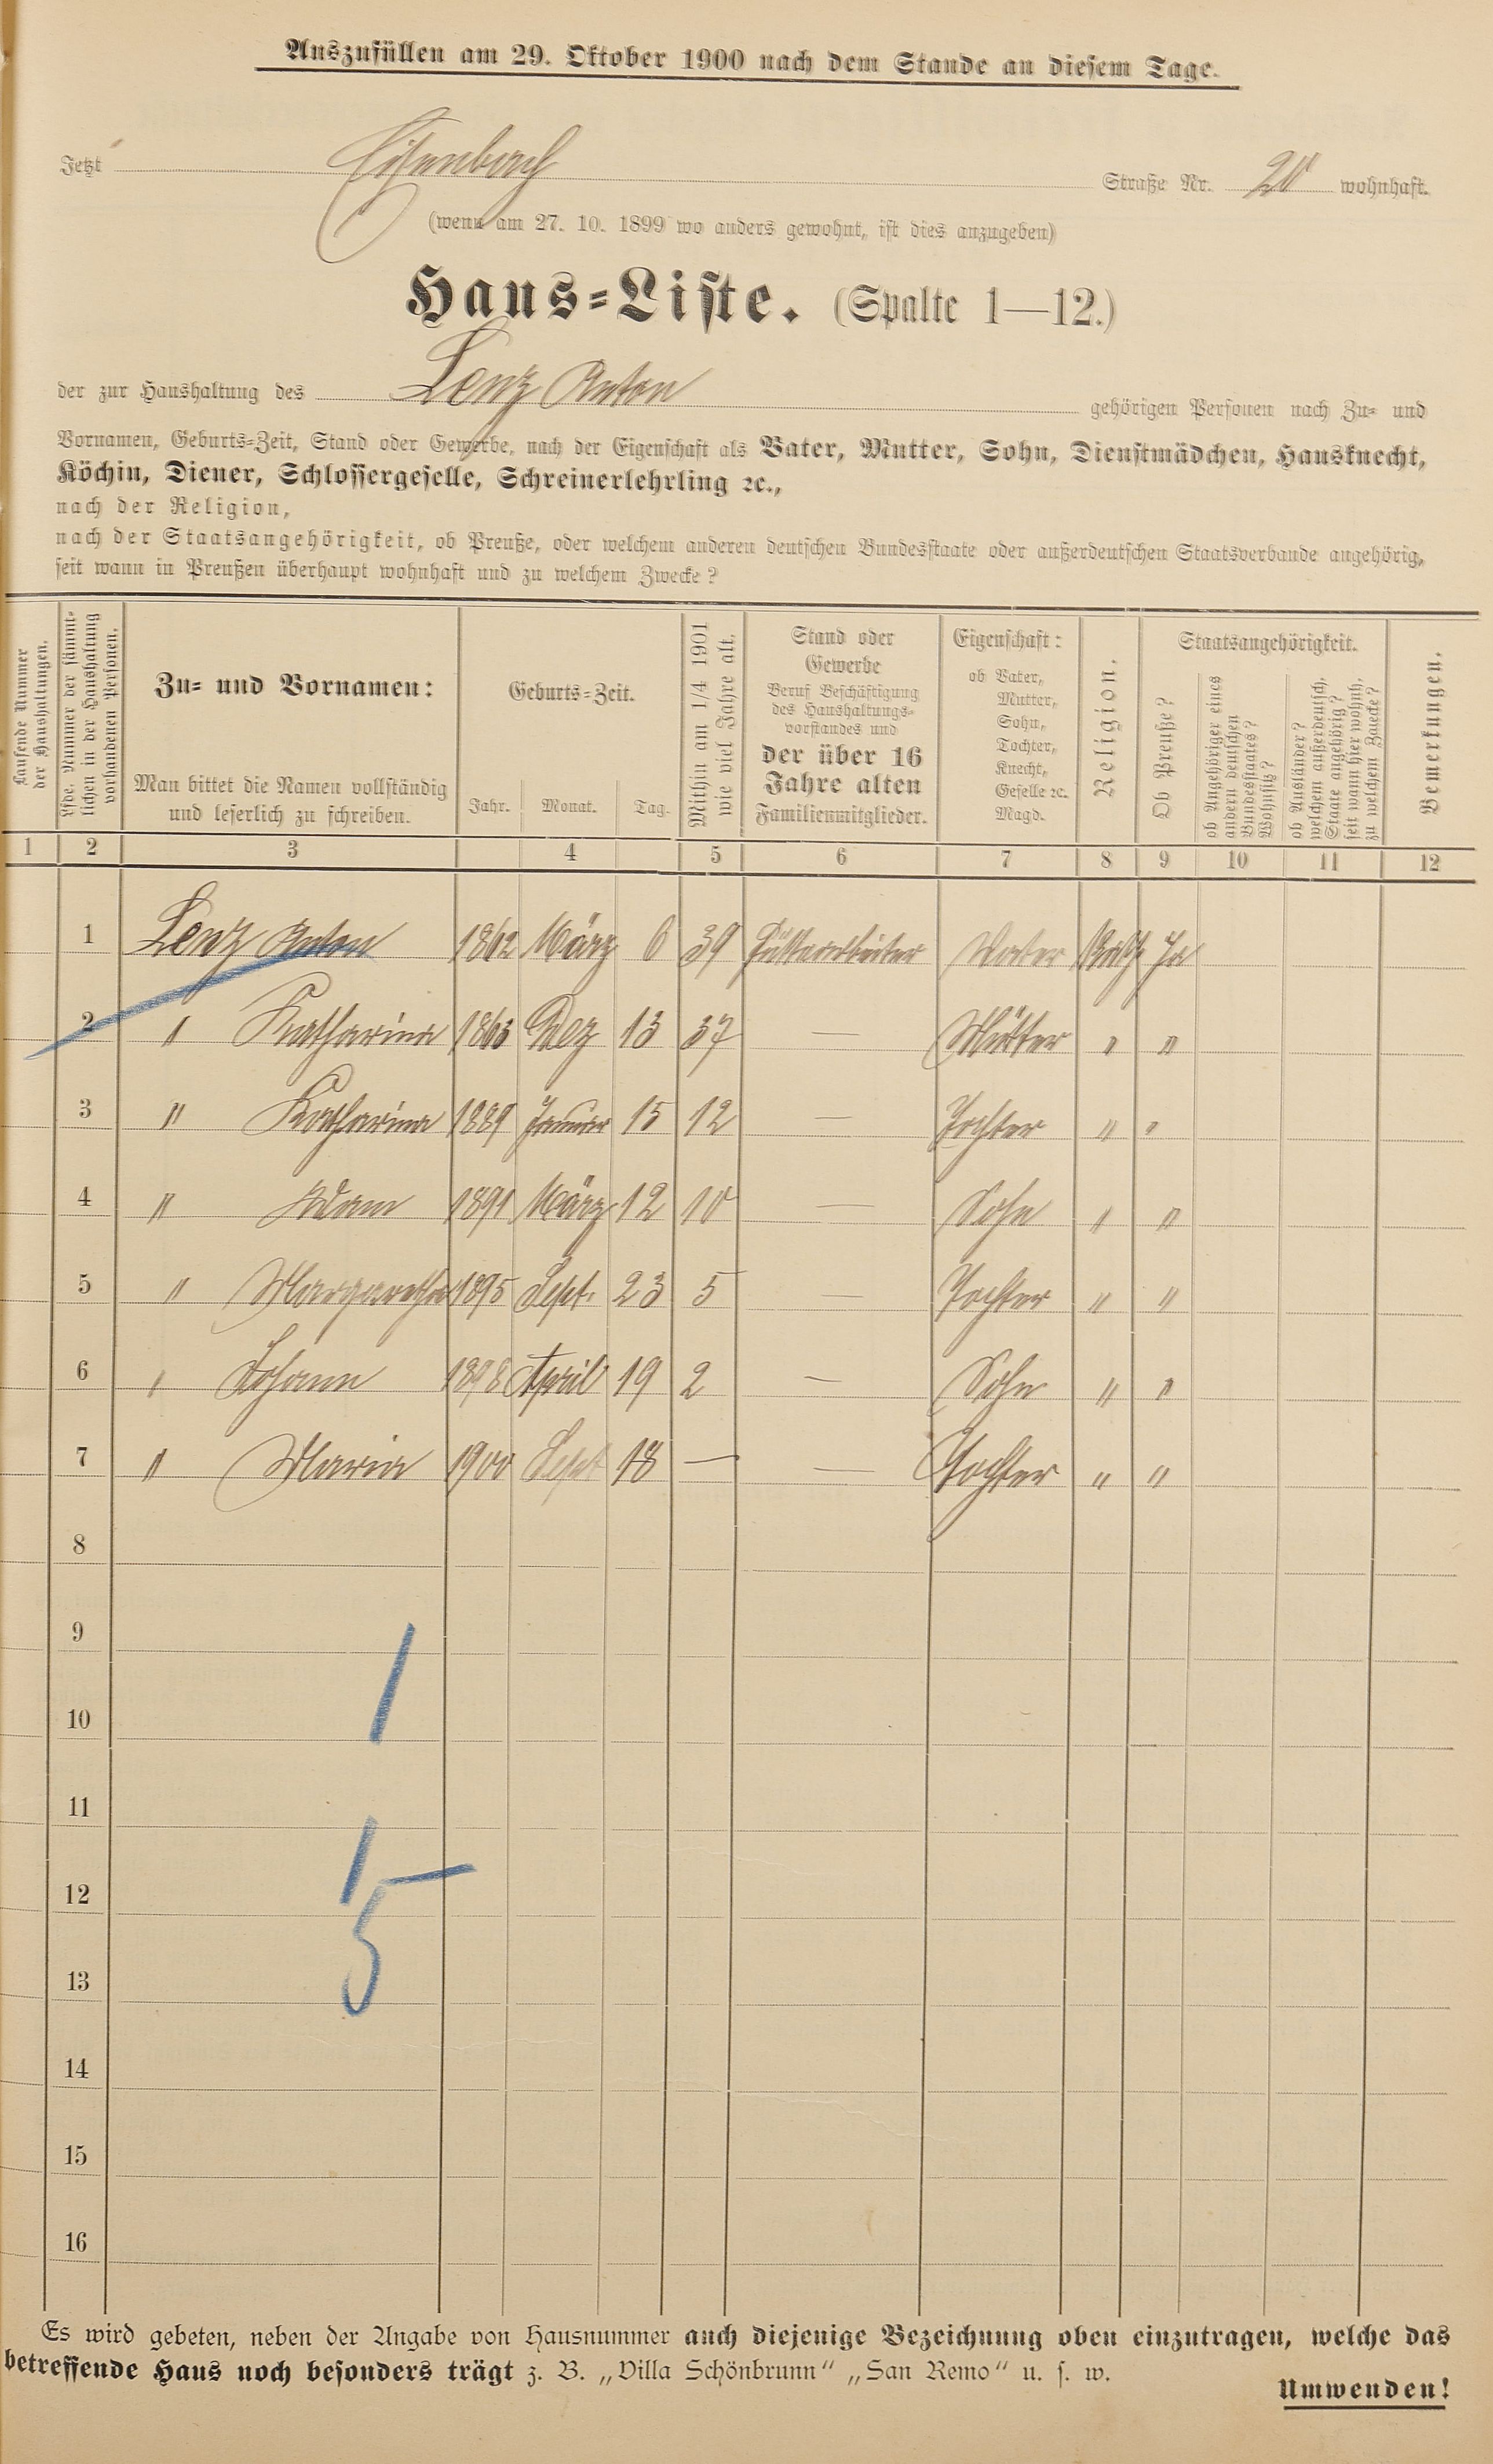 Auszufüllen am 29. Oktober 1900 nach dem Stande an diesem Tage.
Jetzt Eisenbach Straße Nr. 20 wohnhaft.
(wenn am 27. 10. 1899 wo anders gewohnt, ist dies anzugeben)
Haus-Liste. (Spalte 1—12.)
der zur Haushaltung des Lenz Anton gehörigen Personen nach Zu- und
Vornamen, Geburts-Zeit, Stand oder Gewerbe, nach der Eigenschaft als Vater, Mutter, Sohn, Dienstmädchen, Hausknecht,
Köchin, Diener, Schlossergeselle, Schreinerlehrling ꝛc.,
nach der Religion,
nach der Staatsangehörigkeit, ob Preuße, oder welchem anderen deutschen Bundesstaate oder außerdeutschen Staatsverbande angehörig,
seit wann in Preußen überhaupt wohnhaft und zu welchem Zwecke?
Laufende Nummer
der Haushaltungen.
Lfde. Nummer der sämmt-
lichen in der Haushaltung
vorhandenen Personen.
Zu- und Vornamen:
Man bittet die Namen vollständig
und leserlich zu schreiben.
Geburts-Zeit.
Jahr. Monat. Tag.
Mithin am 1/4 1901
wie viel Jahre alt.
Stand oder
Gewerbe
Beruf Beschäftigung
des Haushaltungs-
vorstandes und
der über 16
Jahre alten
Familienmitglieder.
Eigenschaft:
ob Vater,
Mutter,
Sohn,
Tochter,
Knecht,
Geselle ꝛc.
Magd.
Religion.
Staatsangehörigkeit.
Ob Preuße?
ob Angehöriger eines
andern deutschen
Bundesstaates?
Wohnsitz?
ob Ausländer?
welchem außerdeutsch.
Staate angehörig?
seit wann hier wohnh.
zu welchem Zwecke?
Bemerkungen.
1 2 3 4 5 6 7 8 9 10 11 12
1 Lenz Anton 1862 März 6 39 Vater Kath Ja
2 " Katharina 1863 Dez 13 37 — Mutter " "
3 " Katharina 1889 Januar 15 12 — Tochter " "
4 " Adam 1891 März 12 10 — Sohn " "
5 " Margaretha 1895 Sept. 23 5 — Tochter " "
6 " Johann 1898 April 19 2 — Sohn " "
7 " Maria 1900 Sept 18 — — Tochter " "
8
9
10
1
11
12
1
13
5
14
15
16
Es wird gebeten, neben der Angabe von Hausnummer auch diejenige Bezeichnung oben einzutragen, welche das
betreffende Haus noch besonders trägt z. B. „Villa Schönbrunn" „San Remo" u. s. w.
Umwenden!